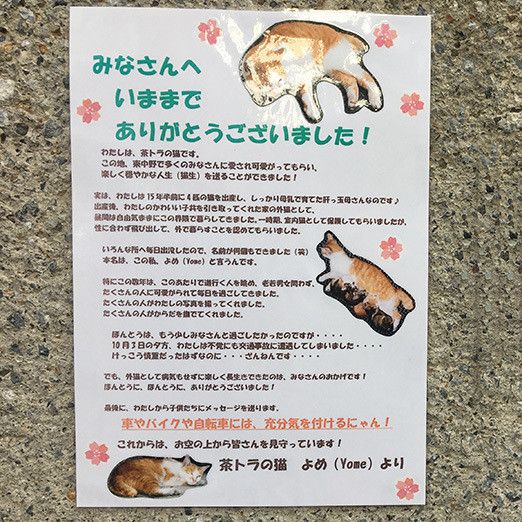 みなさんへ
いままで
ありがとうございました！
わたしは、茶トラの猫です。
この地、東中野で多くのみなさんに愛され可愛がってもらい、
楽しく穏やかな人生（猫生）を送ることができました！
実は、わたしは15年半前に4匹の猫を出産し、しっかり母乳で育てた肝っ玉母さんなのです♪
出産後、わたしのかわいい子供を引き取ってくれた家の外猫として、
昼間は自由気ままにこの界隈で暮らしてきました。一時期、室内猫として保護してもらいましたが、
性に合わず飛び出して、外で暮らすことを認めてもらいました。
いろんな所へ毎日出没したので、名前が何個もできました（笑）
本名は、この私、よめ（Yome）と言うんです。
特にこの数年は、このあたりで道行く人を眺め、老若男女問わず、
たくさんの人に可愛がられて毎日を過ごしてきました。
たくさんの人がわたしの写真を撮ってくれました。
たくさんの人がからだを撫でてくれました。
ほんとうは、もう少しみなさんと過ごしたかったのですが・・・・
10月3日の夕方、わたしは不覚にも交通事故に遭遇してしまいました・・・・
けっこう慎重だったはずなのに・・・ざんねんです・・・・
でも、外猫として病気もせずに楽しく長生きできたのは、みなさんのおかげです！
ほんとうに、ほんとうに、ありがとうございました！
最後に、わたしから子供たちにメッセージを送ります。
車やバイクや自転車には、充分気を付けるにゃん！
これからは、お空の上から皆さんを見守っています！
茶トラの猫　よめ（Yome）より